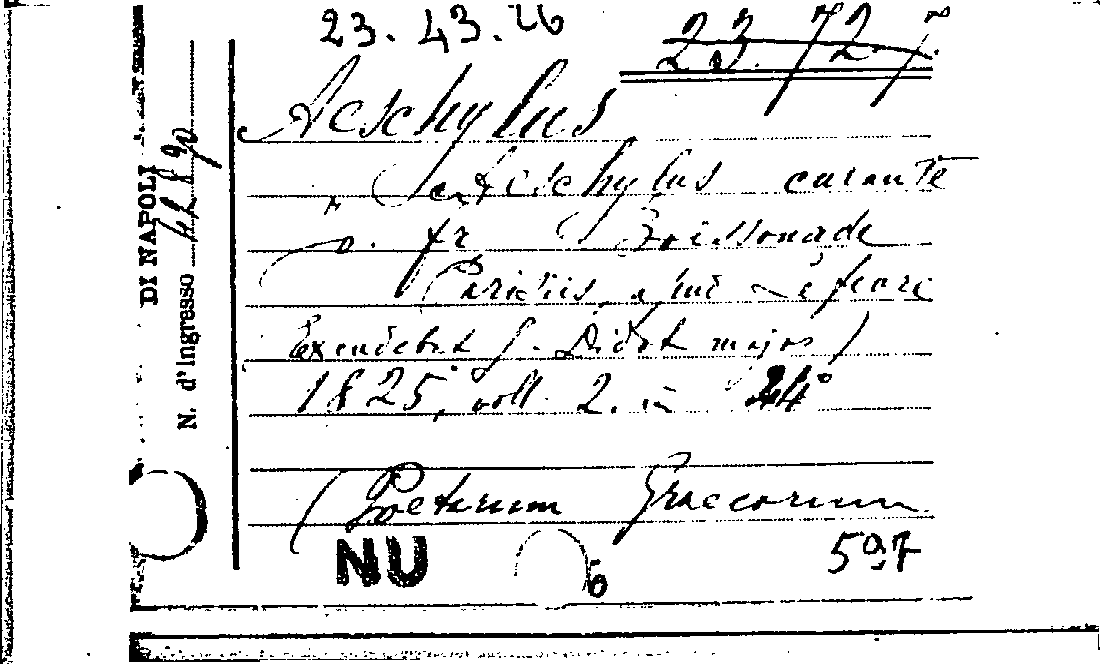 23. 43. 26
23. 72. 7.
Aeschylus
Aeschylus curante
fr Boissonade
Parisiis, apud Lefèvre
Excudebat J. Didot major)
1825, voll. 2. in 24°
(Poetarum Graecorum
NU 6 597
DI NAPOLI
N. d'Ingresso